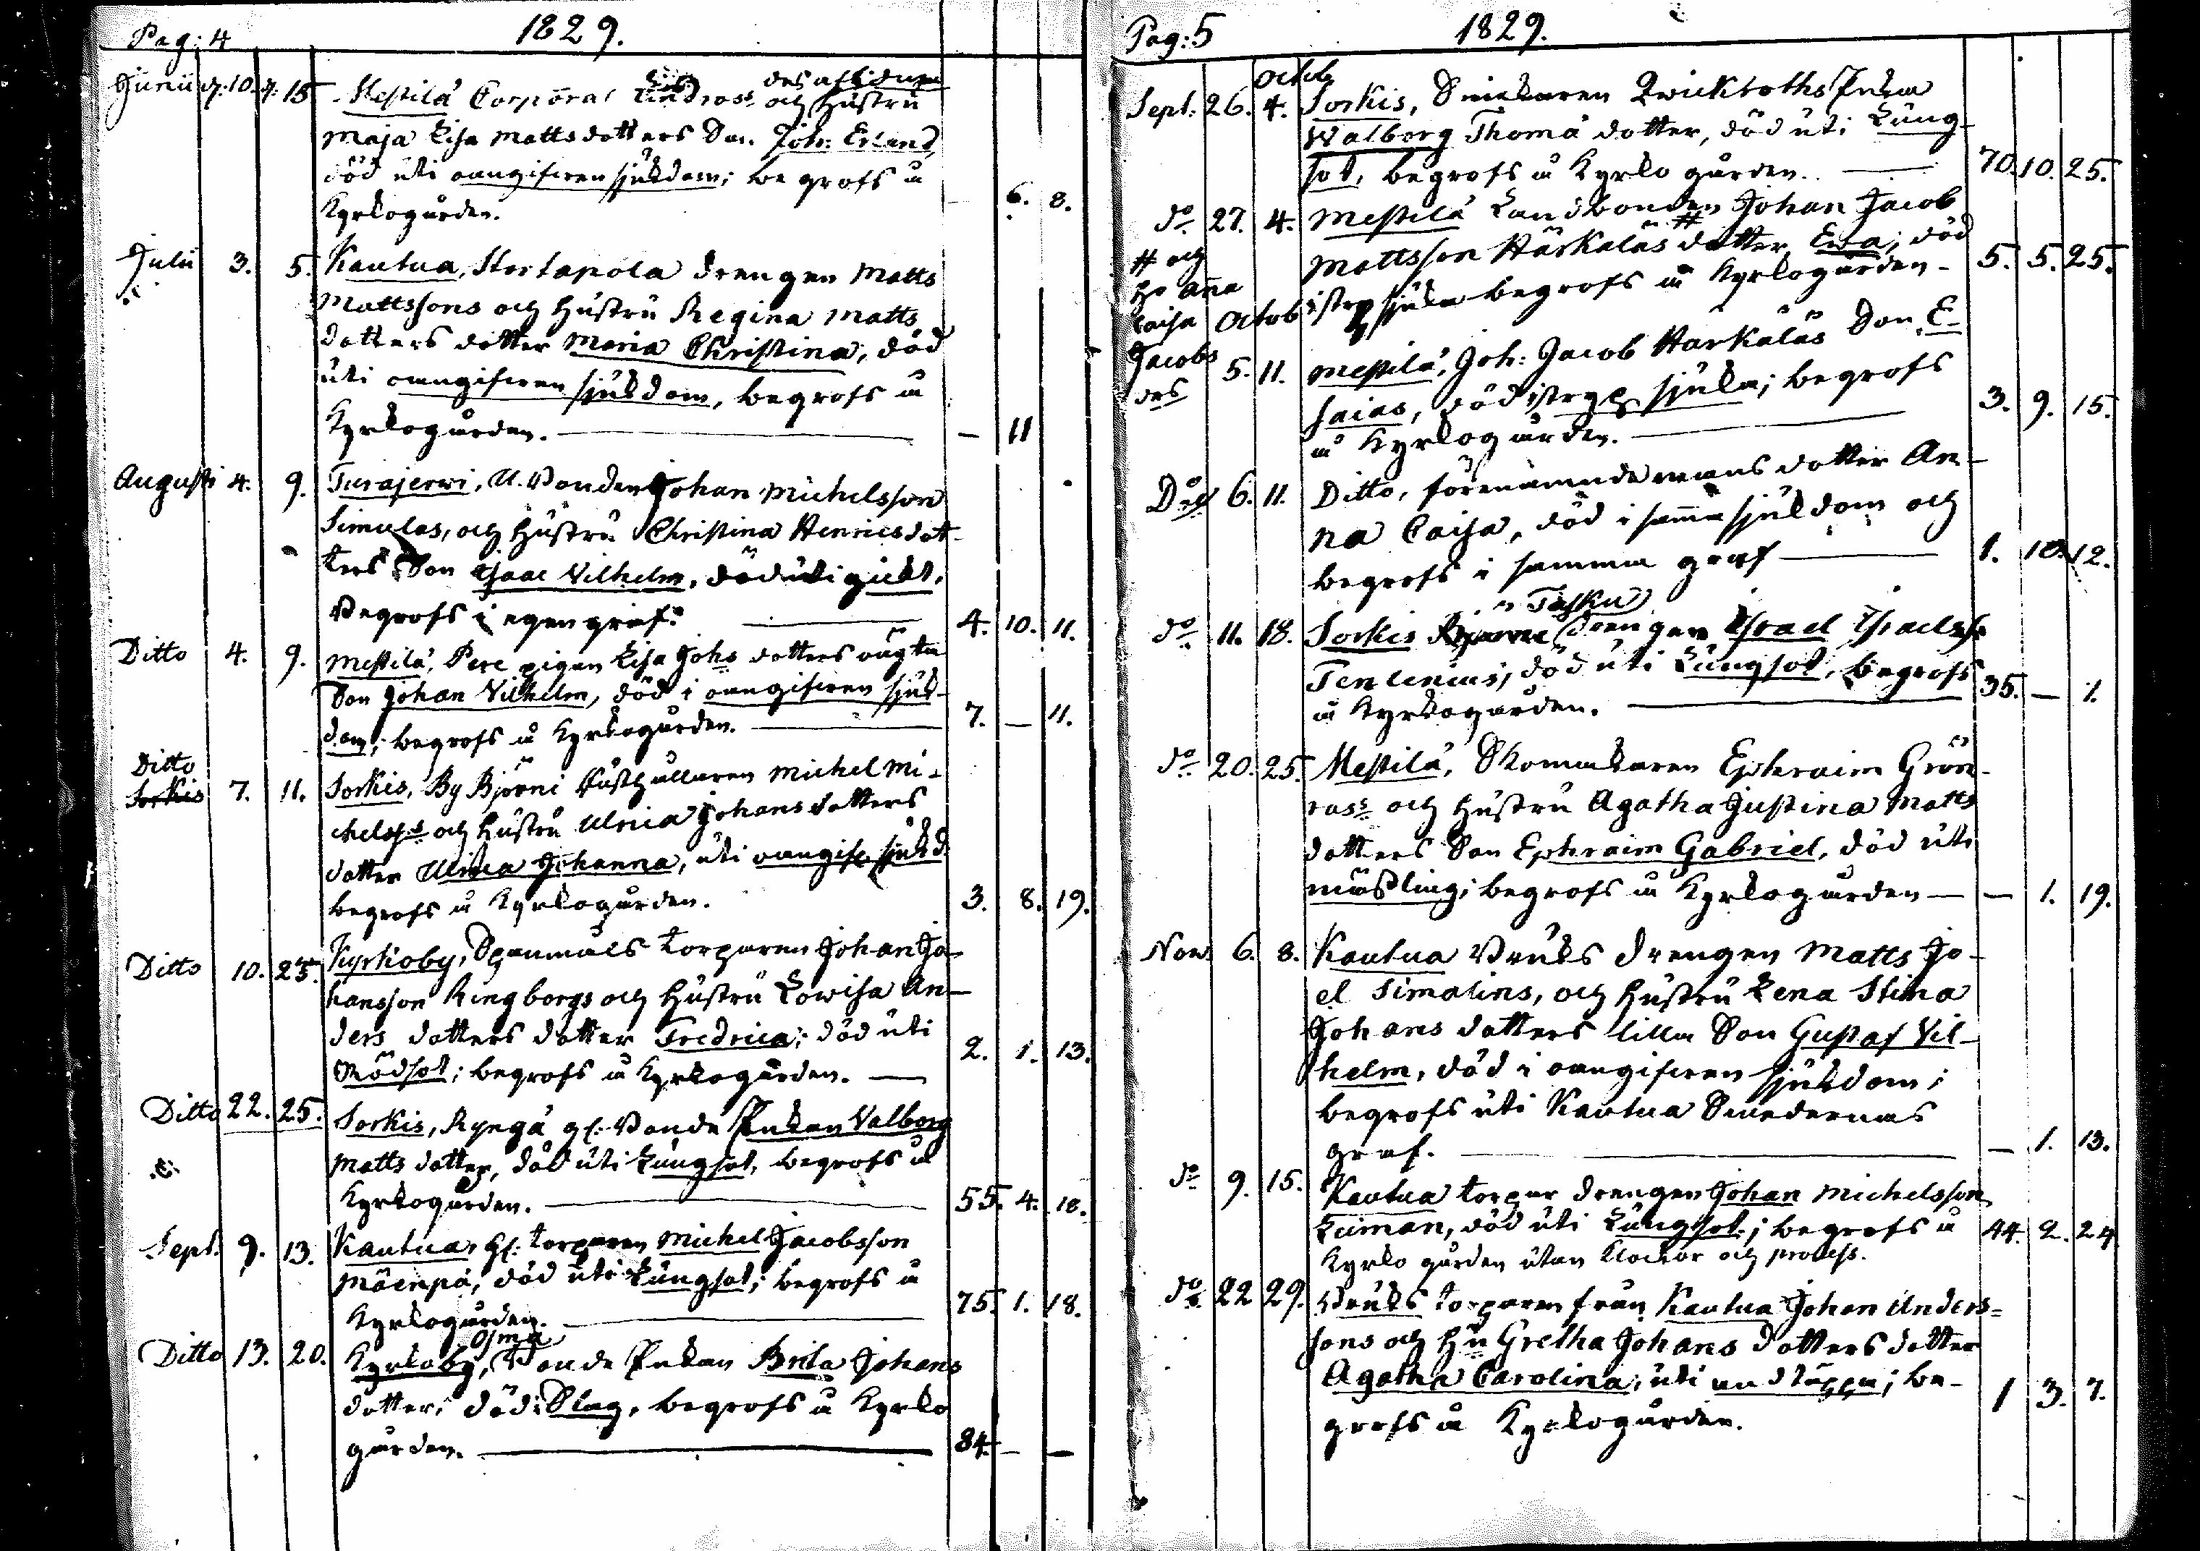 Pag: 4 1829.
Junii d. 10. d. 15. Mestilä Corporal Lindross des afl: dufna och Hustru
Maja Lisa Matts dotters Son. Joh: Erland,
död uti oangifven sjukdom; begrofs å
Kyrkogården. 6. 8.
Julii 3. 5. Kautua, Stortapola drengen Matts
Mattssons och Hustru Regina Matts
dotters dotter Maria Christina, död
uti oangifven sjukdom, begrofs å
Kyrkogården. — 11
Augusti 4. 9. Turajerwi, U. Bonden Johan Michelsson
Simulas, och Hustru Christina Henricsdot-
ters Son Isaac Vilhelm, död uti gickt,
Begrofs i egen graf. 4. 10. 11.
Ditto 4. 9. Mestilä, Pere pigan Lisa Johs dotters oägta
Son Johan Vilhelm, död i oangifven sjuk-
dom; begrofs å Kyrkogården. 7. — 11.
Ditto
Sorkis 7. 11. Sorkis, By Björni Rusthållaren Michel Mi-
chelss:s och Hustru Ulrica Johans dotters
dotter Ulrica Johanna, uti oangif: sjukd:
begrofs å Kyrkogården. 3. 8. 19.
Ditto 10. 23. Kyrkoby, Spanmåls torparen Johan Jo-
hansson Ringborgs och Hustru Lowisa An-
ders dotters dotter Fredrica; död uti
Rödsot; begrofs å Kyrkogården. — 2. 1. 13.
Ditto 22. 25. Sorkis, Ryngä gl: Bonde Enkan Valborg
Matts dotter, död uti Lungsot, begrofs å
Kyrkogården. 55. 4. 18.
Sept. 9. 13. Kautua, gl: torparen Michel Jacobsson
Mäenpä, död uti Lungsot; begrofs å
Kyrkogården. 75. 1. 18.
Ditto 13. 20. Kyrkoby, Osma Bonde Enkan Brita Johans
dotter; död: Slag, begrofs å Kyrko
gården. 84. — —
Pag: 5 1829.
Octob
Sept. 26. 4. Sorkis, Snickaren Qwickroths Enka
Walborg Thomä dotter, död uti Lung-
sot, begrofs å Kyrko gården. 70. 10. 25.
do 27. 4. Mestilä Landbonden Johan Jacob
Mattsson Härkäläs # dotter Ewa; död
i stryp sjuka begrofs å Kyrkogården - 5. 5. 25.
# och
Ho Anna
Caisa
Jacobs
des
Octob
5. 11. Mestilä, Joh: Jacob Härkäläs Son E-
saias, död i stryp sjuka; begrofs
å Kyrkogården. 3. 9. 15.
Do 6. 11. Ditto, förenämnde mans dotter An-
na Caisa, död i samma sjukdom och
begrofs i samma graf — 1. 10. 12.
do 11. 18. Sorkis Tasku drengen Israel Israelss:
Tenlenius, död uti Lungsot, begrofs
å Kyrkogården. 35. — 1.
do 20. 25. Mestilä, Skomakaren Ephraim Grön-
ross och Hustru Agatha Justina Matts
dotters Son Ephraim Gabriel, död uti
mässling; begrofs å Kyrkogården — — 1. 19.
Nov. 6. 8. Kautua Bruks drengen Matts Jo-
el Simalins, och Hustru Lena Stina
Johans dotters lilla Son Gustaf Vil-
helm, död i oangifven sjukdom;
begrofs uti Kautua Smedernas
graf. — 1. 13.
do 9. 15. Kautua torpar drengen Johan Michelsson
Leiman, död uti Lungsot; begrofs å
Kyrko gården utan klockor och process. 44. 2. 24.
do 22 29. Bruks torparen från Kautua Johan Anders-
sons och Hu Gretha Johans dotters dotter
Agatha Carolina, uti andtäppa; be-
grofs å Kyrkogården. 1 3. 7.